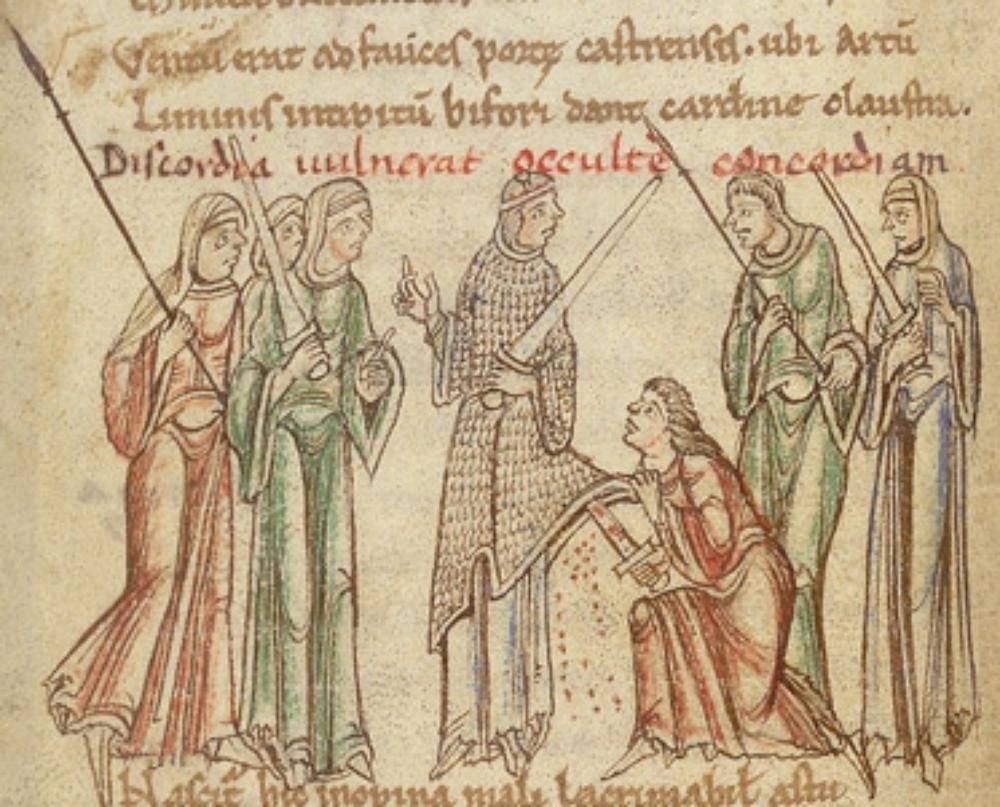 Ventū erat ad fauces portę castrensis. ubi artū
Liminis introitū bifori dant cardine claustra.
Discordia uulnerat occultę concordiam
Nascit̄ hic inopina mali lacrimabil̄ astu